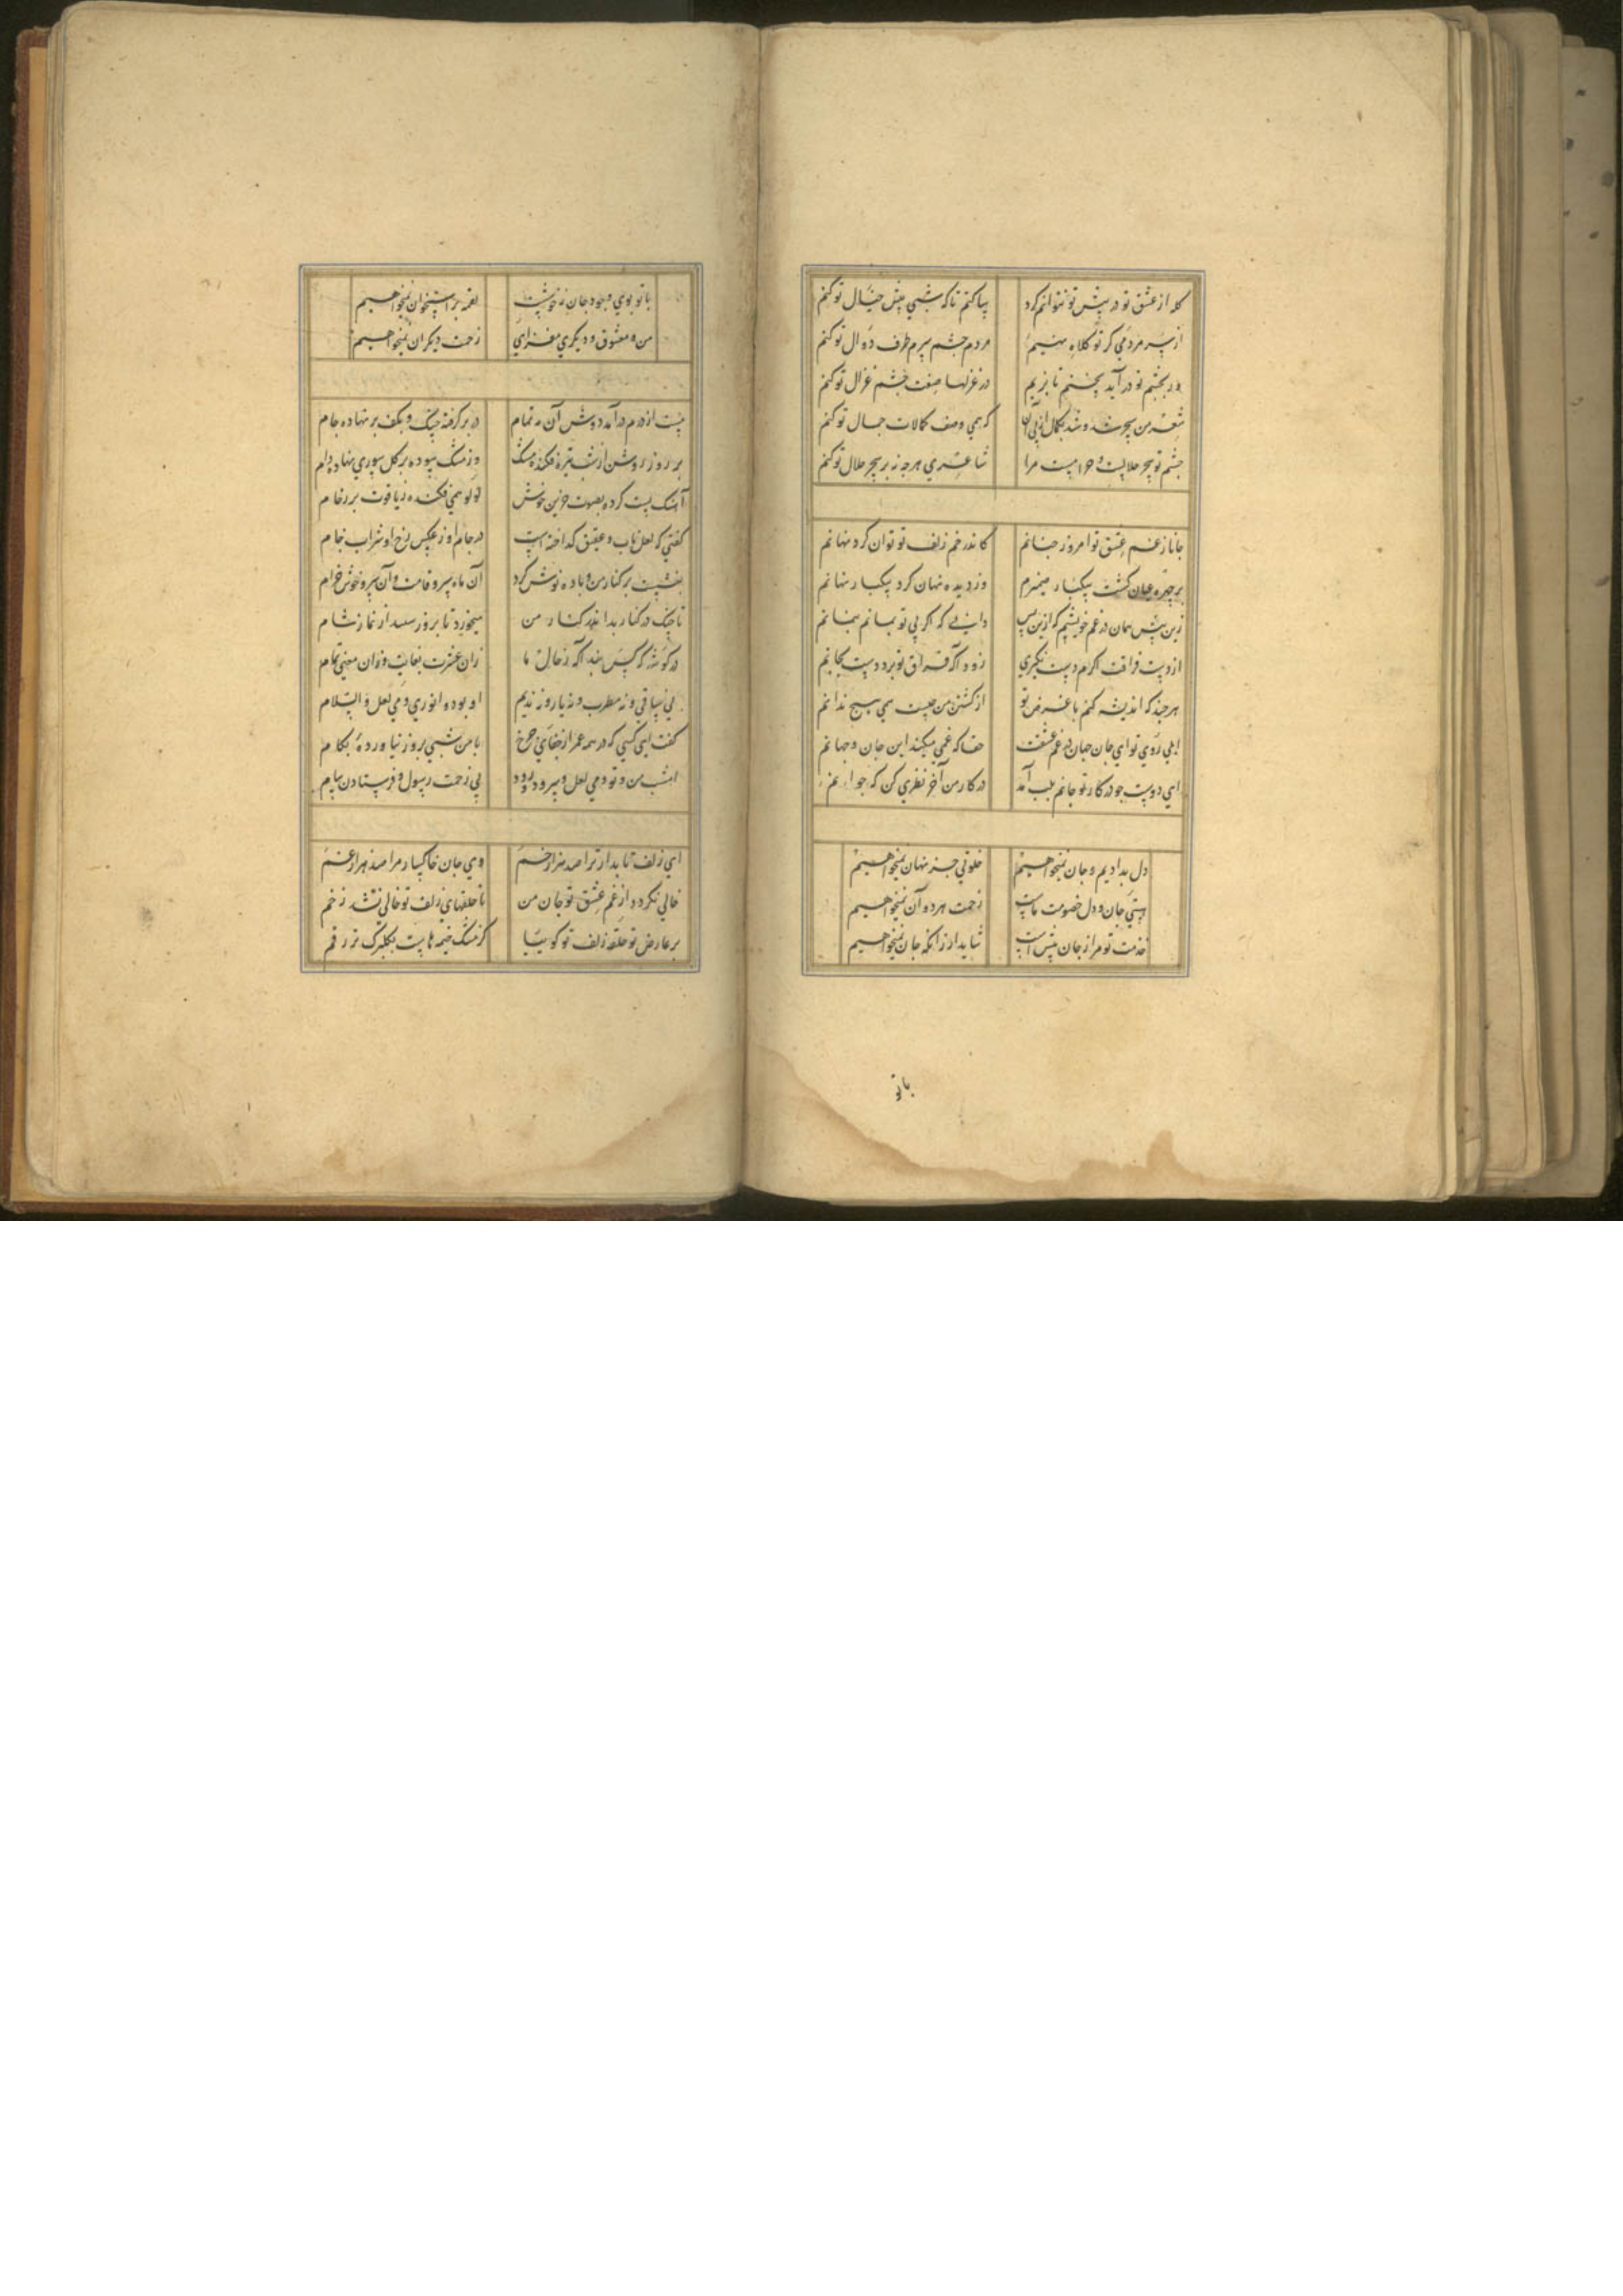 کله از عشق تو در پیش تو نتوانم کرد بپا کنم تا که شبی پیش خیال تو کنم
از سر مردمی کر تو کلاه منیم مردم چشم سرم طرف دوال تو کنم
در بچشم تو در آید بخنم تا بزیم در غزلها صفت چشم غزال تو کنم
شعر من سحر شد و شد بکمال از پی آن که همی وصف کمالات جمال تو کنم
چشم تو سحر حلالست و حرامست مرا شاعری هرچه نه بر سحر حلال تو کنم
جانا ز غم عشق تو امروز چنانم کاندر خم زلف تو توان کرد نهانم
بر چهره عیان کشت بیکبار ضمیرم وز دیده نهان کرد بیکبار نهانم
زین پیش نهان در غم خویشم که ازین پس دانی که اگر بی تو بمانم بنمانم
از دست فراقت اکرم دست نگیری زود آکه فراق تو برد دست بجانم
هرچند که اندیشه کنم با غرض تو از کشتن من چیست همی هیچ ندانم
ای بی روی تو ای جان جهان در غم عشقت حقا که غمی میکند این جان و جهانم
ای دوست چو در کار تو جانم بلب آمد در کار من آخر نظری کن که جوانم
دل بدادیم و جان نمیخواهیم خلوتی جز نهان نمیخواهیم
هستی جان و دل خصومت ماست زحمت هردو آن نمیخواهیم
خدمت تو مرا ز جان پیش است شاید ار زانکه جان نمیخواهیم
باتو
باتو بوی وجود جان ز خوشست لقمه بر استخوان نمیخواهیم
من و معشوق و دیکری مفزای زحمت دیکران نمیخواهیم
مست از درم درآمد دوش آن مه تمام در بر کرفته چنک و بکف بر نهاده جام
بر روز روشن از شب تیره فکنده مشک وز مشک سوده بر کل سوری نهاده دام
آهنک پست کرده بصوت حزین خویش لولو همی فکنده ز یاقوت بر رخام
کفتی که لعل ناب و عقیق کداخته است در جام او ز عکس رخ او شراب خام
بنشست بر کنار من و باده نوش کرد آن ماه سرو قامت و آن سرو خوش خرام
تا چنک در کنار بد اندر کنار من میخورد تا بروز رسید از نماز شام
در کوشه که کس نبد آکه ز حال ما زان عشرت بغایت وزان معنی تمام
نی ساقی و نه مطرب و نه یار و نه ندیم او بود و انوری و می لعل و السلام
کفت ای کسی که در همه عمر از جفای چرخ با من شبی بروز نیاورده بکام
امشب من و تو و می لعل و سرود رود بی زحمت رسول و فرستادن پیام
ای زلف تابدار ترا صد هزار خم وی جان خاکسار مرا صد هزار غم
خالی نکردد از غم عشق تو جان من تا حلقهای زلف تو خالی نشد ز خم
بر عارض تو حلقه زلف تو کوئیا کز مشک خیمه هاست بکلبرک تر رقم